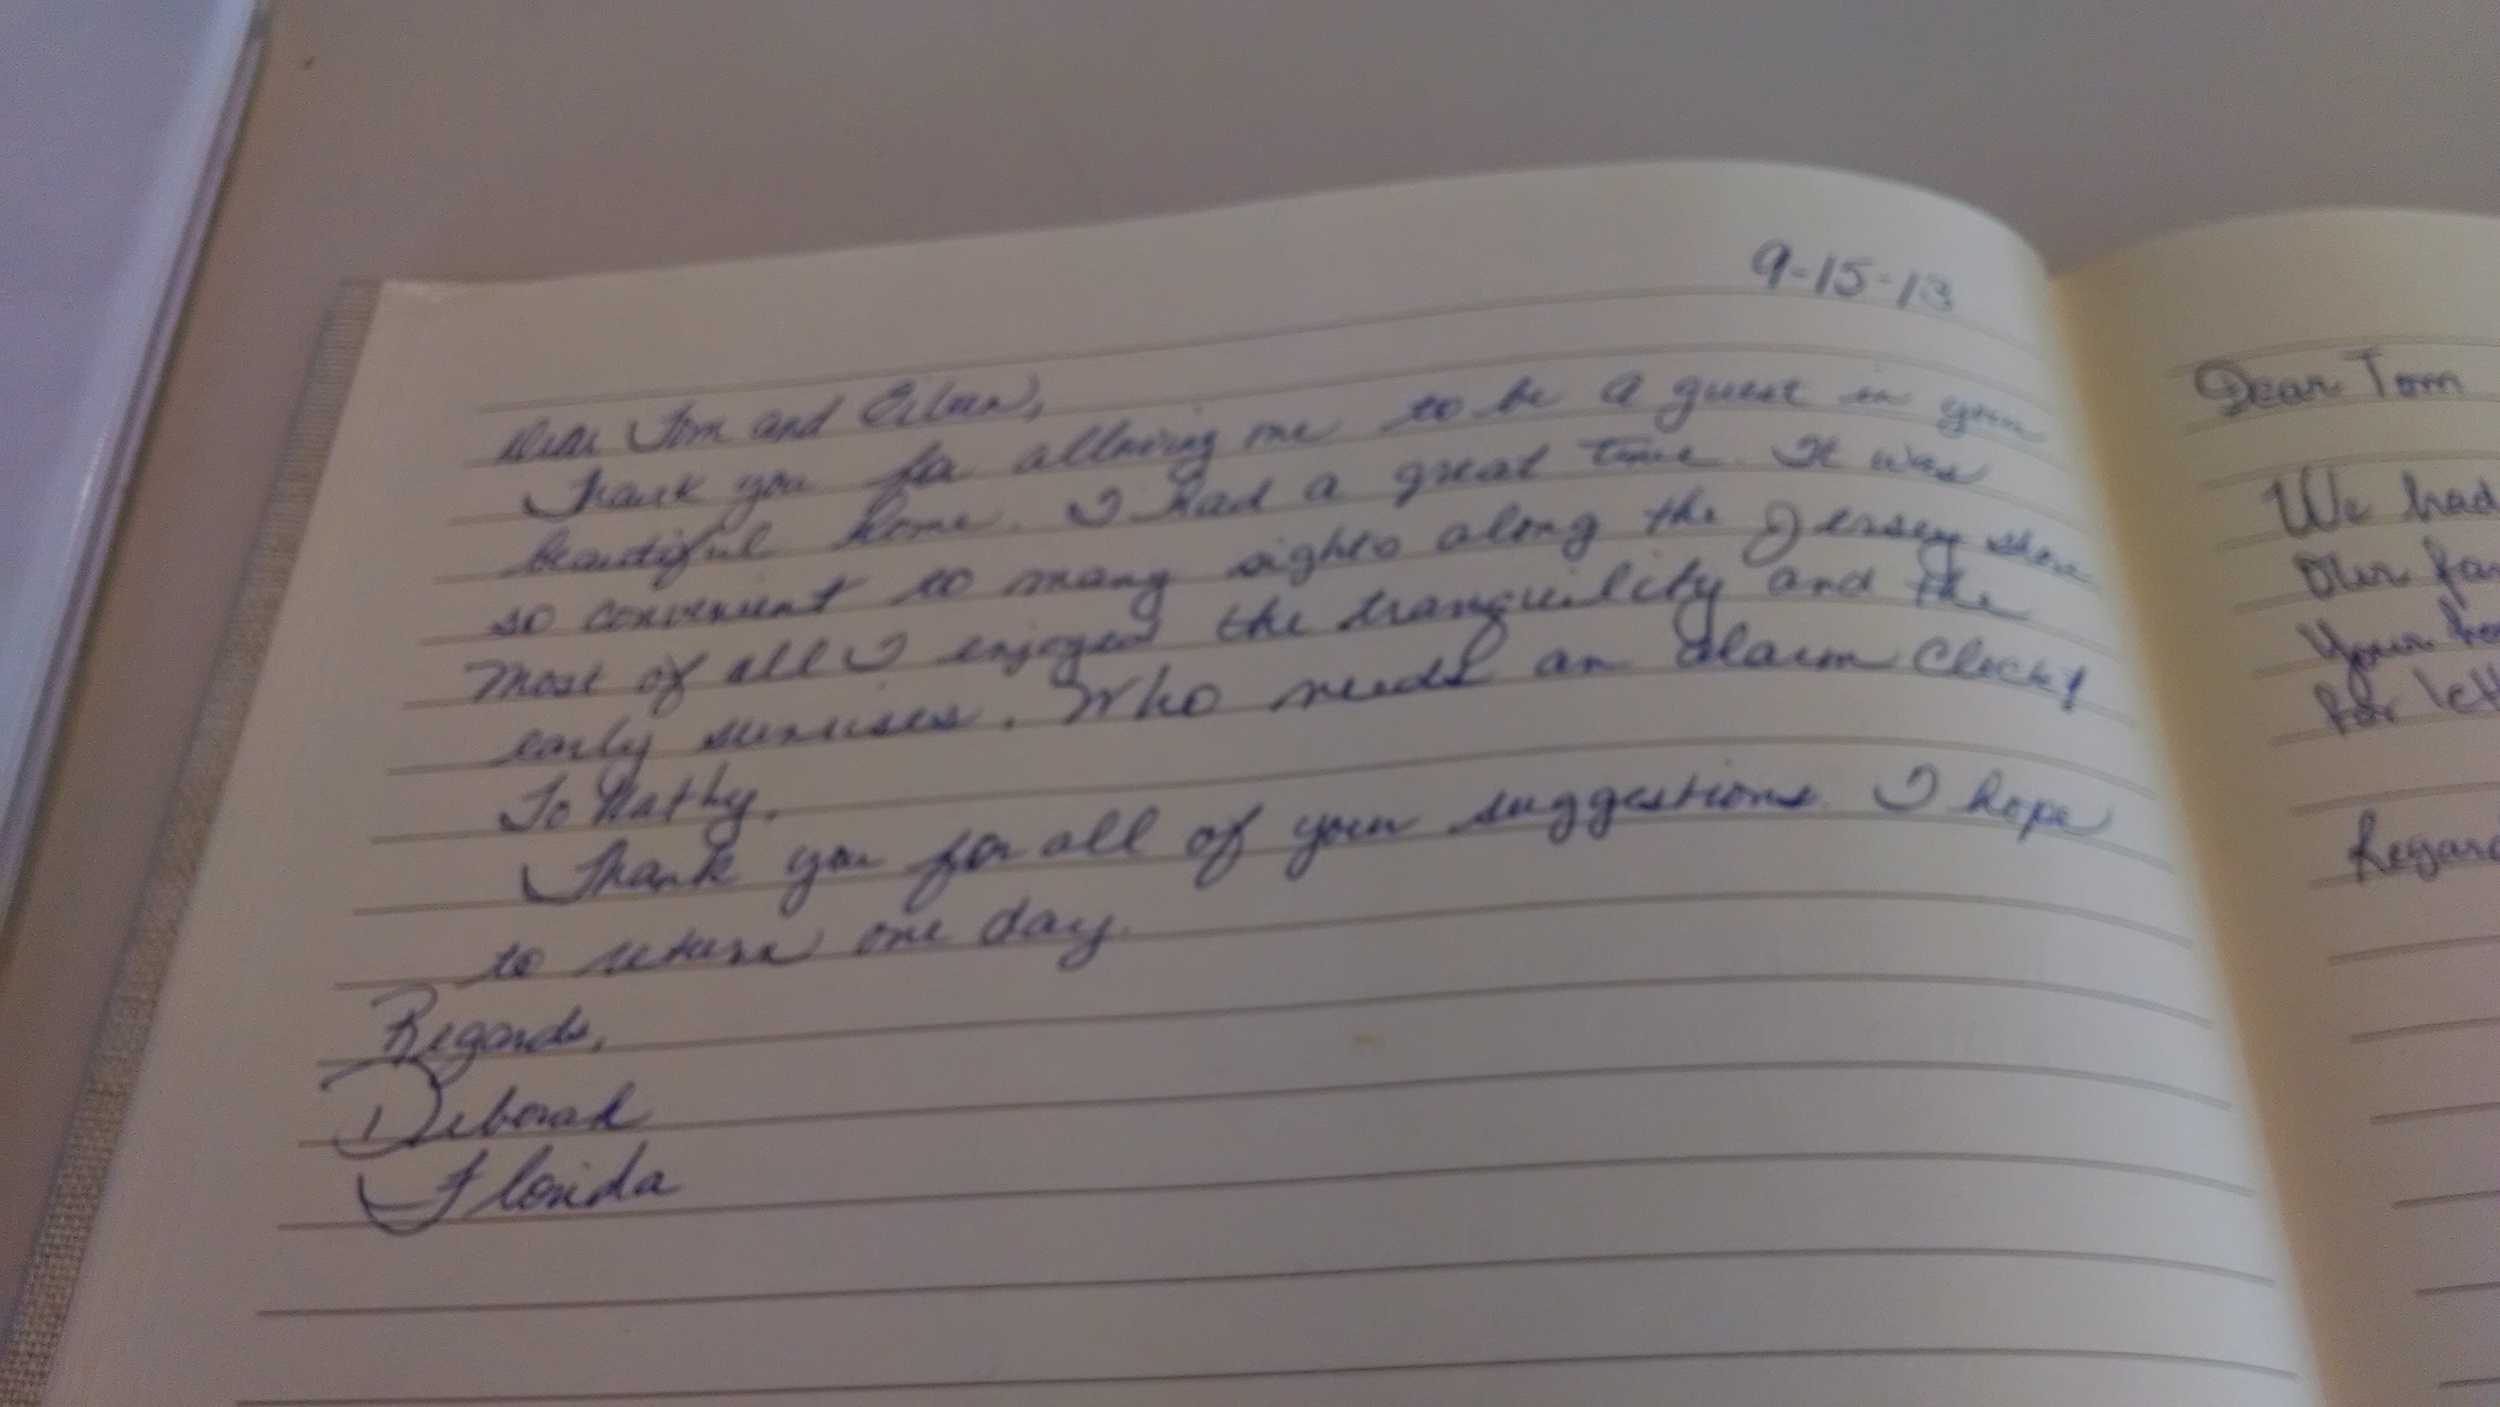 9-15-13
Dear Tom and Eileen,
Thank you for allowing me to be a guest in your
beautiful home. I had a great time. It was
so convenient to many sights along the Jersey shore
Most of all I enjoyed the tranquility and the
early sunrises. Who needs an alarm clock!
To Kathy,
Thank you for all of your suggestions. I hope
to return one day.
Regards,
Deborah
Florida
Dear Tom
We had
Our
Your
for
Regard